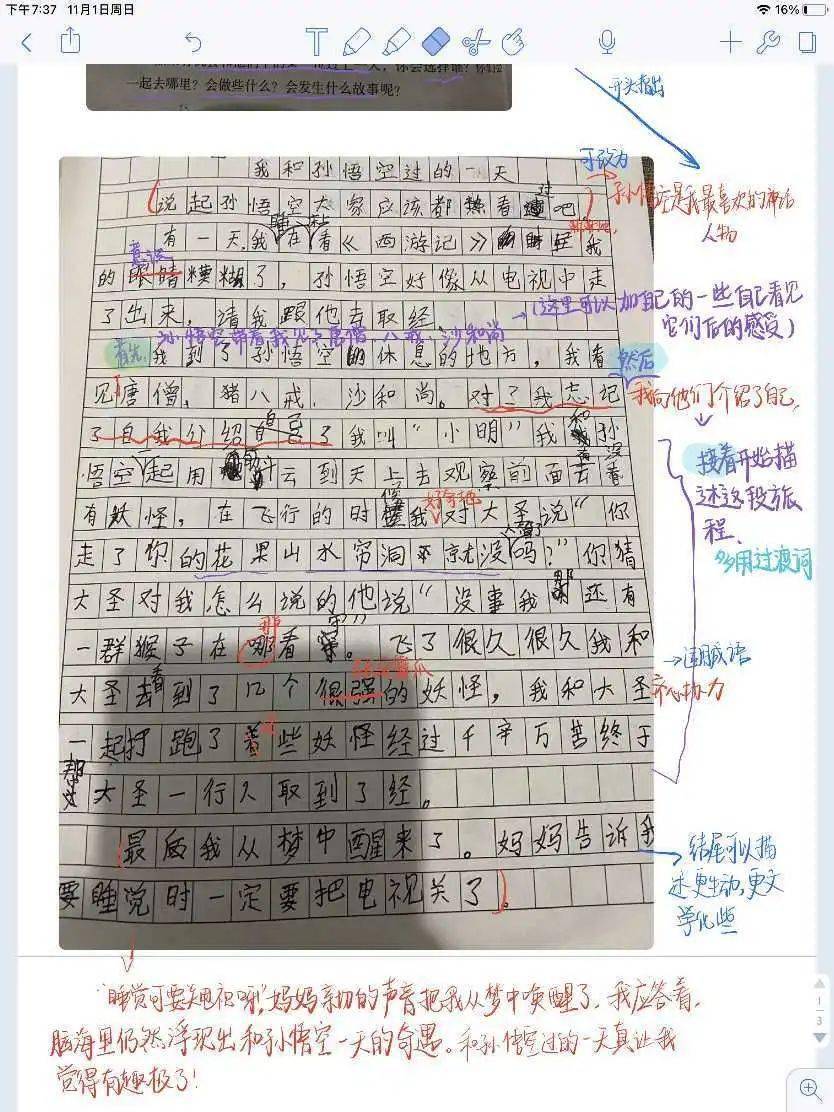 下午7:37 11月1日周日
16%
一起去哪里？会做些什么？会发生什么故事呢？
开头指出
我和孙悟空过的一天
可改为
(说起孙悟空大家应该都熟看过吧
孙悟空是我最喜欢的神话
人物
有一天,我在看《西游记》我
意识
的眼睛糢糊了，孙悟空好像从电视中走
了出来，请我跟他去取经
(这里可以加自己的一些自己看见
它们后的感受)
孙悟空带着我见了唐僧、八戒、沙和尚
首先,我到了孙悟空的休息的地方，我看
然后
见唐僧，猪八戒，沙和尚。对了我忘记
我向他们介绍了自己,
了自我介绍自己了我叫“小明”我和孙
接着开始描
述这段旅
程、
多用过渡词
悟空一起用筋斗云到天上去观察前面去看
没
有妖怪，在飞行的时候我对大圣说“你
好奇地
走了你的花果山水帘洞就没人管了吗？”你猜
大圣对我怎么说的他说“没事我那还有
一群猴子在哪看守”。飞了很久很久我和
那
大圣去看到了几个很强的妖怪，我和大圣
→四字成语
齐心协力
一起打跑了着些妖怪经过千辛万苦终于
这
帮大圣一行人取到了经。
最后我从梦中醒来了。妈妈告诉我
要睡觉时一定要把电视关了。
结尾可以描
述更生动,更文
学化些
“睡觉可要关电视呀”,妈妈亲切的声音把我从梦中唤醒了,我应答着,
脑海里仍然浮现出和孙悟空一天的奇遇。和孙悟空过的一天真让我
觉得有趣极了！
1
3